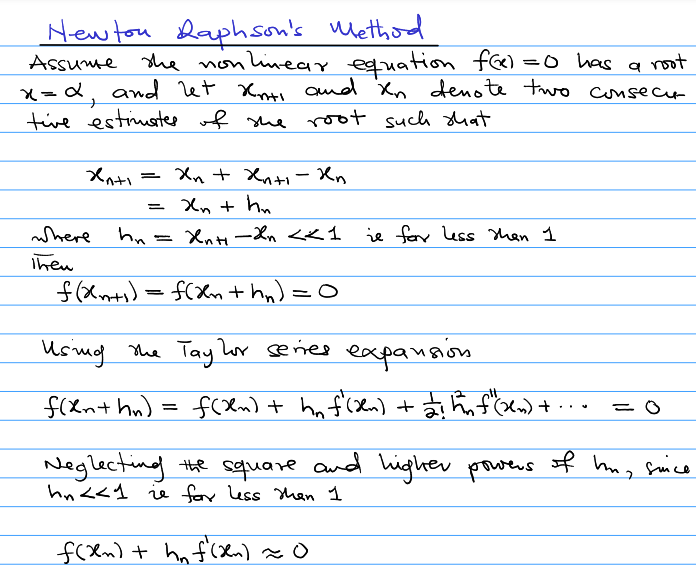 Newton Raphson's Method
Assume the nonlinear equation f(x) = 0 has a root
x = α, and let xₙ₊₁ and xₙ denote two consecu-
tive estimates of the root such that
xₙ₊₁ = xₙ + xₙ₊₁ − xₙ
= xₙ + hₙ
where hₙ = xₙ₊₁ − xₙ << 1 ie far less than 1
Then
f(xₙ₊₁) = f(xₙ + hₙ) = 0
Using the Taylor series expansion
f(xₙ + hₙ) = f(xₙ) + hₙ f'(xₙ) + 1/2! hₙ² f''(xₙ) + ··· = 0
Neglecting the square and higher powers of hₙ, since
hₙ << 1 ie far less than 1
f(xₙ) + hₙ f'(xₙ) ≈ 0